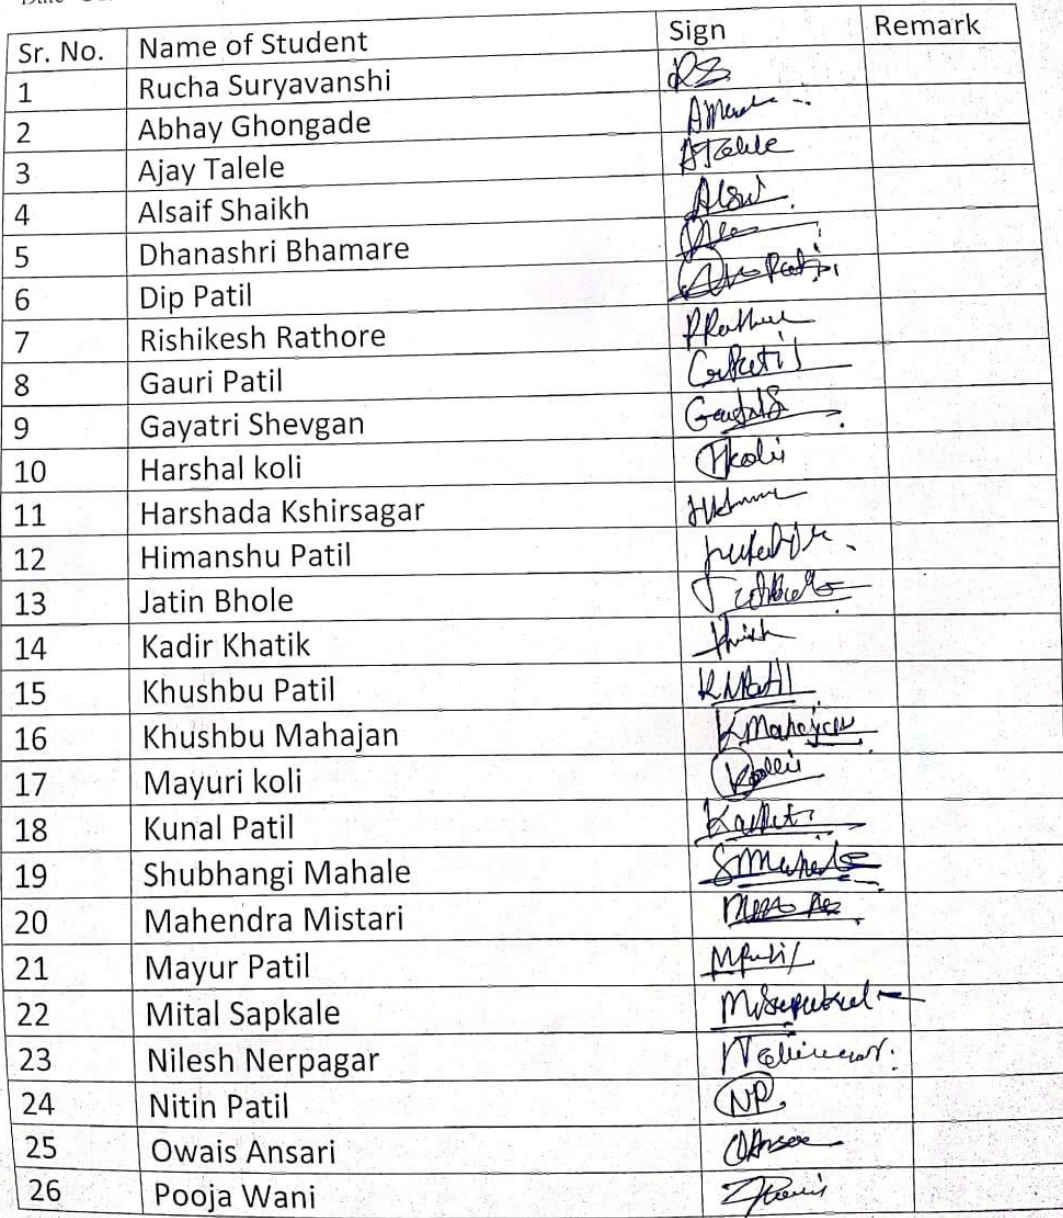 Sr. No. Name of Student Sign Remark
1 Rucha Suryavanshi RS
2 Abhay Ghongade
3 Ajay Talele ATalele
4 Alsaif Shaikh
5 Dhanashri Bhamare
6 Dip Patil
7 Rishikesh Rathore
8 Gauri Patil
9 Gayatri Shevgan
10 Harshal koli Hkoli
11 Harshada Kshirsagar
12 Himanshu Patil
13 Jatin Bhole
14 Kadir Khatik
15 Khushbu Patil
16 Khushbu Mahajan KMahajan
17 Mayuri koli
18 Kunal Patil
19 Shubhangi Mahale
20 Mahendra Mistari
21 Mayur Patil MPatil
22 Mital Sapkale
23 Nilesh Nerpagar
24 Nitin Patil NP.
25 Owais Ansari
26 Pooja Wani